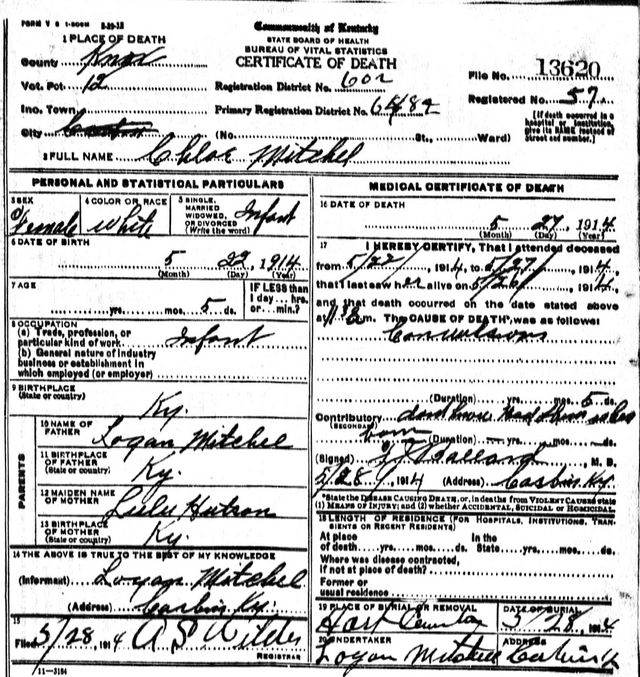 FORM V S 1-500M 8-20-13
Commonwealth of Kentucky
STATE BOARD OF HEALTH
BUREAU OF VITAL STATISTICS
CERTIFICATE OF DEATH
1 PLACE OF DEATH
County Knox
Vot. Pct. 12
Inc. Town
City
Registration District No. 602
Primary Registration District No. 6484
File No. 13620
Registered No. 57
(No. St., Ward)
[If death occurred in a hospital or institution, give its NAME instead of street and number.]
2 FULL NAME Chloe Mitchel
PERSONAL AND STATISTICAL PARTICULARS
3 SEX Female
4 COLOR OR RACE White
5 SINGLE, MARRIED WIDOWED, OR DIVORCED (Write the word) Infant
6 DATE OF BIRTH
5 22, 1914
(Month) (Day) (Year)
7 AGE
yrs. mos. 5 ds.
IF LESS than 1 day... hrs. or... min.?
8 OCCUPATION
(a) Trade, profession, or particular kind of work Infant
(b) General nature of industry
business or establishment in
which employed (or employer)
9 BIRTHPLACE
(State or country) Ky.
PARENTS
10 NAME OF FATHER Logan Mitchel
11 BIRTHPLACE OF FATHER (State or country) Ky.
12 MAIDEN NAME OF MOTHER Lulu Hutson
13 BIRTHPLACE OF MOTHER (State or country) Ky.
14 THE ABOVE IS TRUE TO THE BEST OF MY KNOWLEDGE
(Informant) Logan Mitchel
(Address) Corbin Ky.
15
Filed 5/28, 1914
REGISTRAR
11-3184
MEDICAL CERTIFICATE OF DEATH
16 DATE OF DEATH
5 27, 1914
(Month) (Day) (Year)
17 I HEREBY CERTIFY, That I attended deceased
from 5/22/, 1914, to 5/27/, 1914,
that I last saw her alive on 5/26/, 1914,
and that death occurred on the date stated above
at m. The CAUSE OF DEATH was as follows:
Convulsions
(Duration) yrs. mos. 5 ds.
Contributory
(SECONDARY)
born (Duration) yrs. mos. ds.
(Signed) Ballard, M. D.
5/28, 1914 (Address) Corbin Ky.
*State the DISEASE CAUSING DEATH, or, in deaths from VIOLENT CAUSES state
(1) MEANS OF INJURY; and (2) whether ACCIDENTAL, SUICIDAL or HOMICIDAL.
18 LENGTH OF RESIDENCE (FOR HOSPITALS, INSTITUTIONS, TRANSIENTS OR RECENT RESIDENTS)
At place of death yrs. mos. ds. In the State yrs. mos. ds.
Where was disease contracted,
If not at place of death?
Former or
usual residence
19 PLACE OF BURIAL OR REMOVAL Hart County
DATE OF BURIAL 5/28, 1914
20 UNDERTAKER Logan Mitchell
ADDRESS Corbin Ky